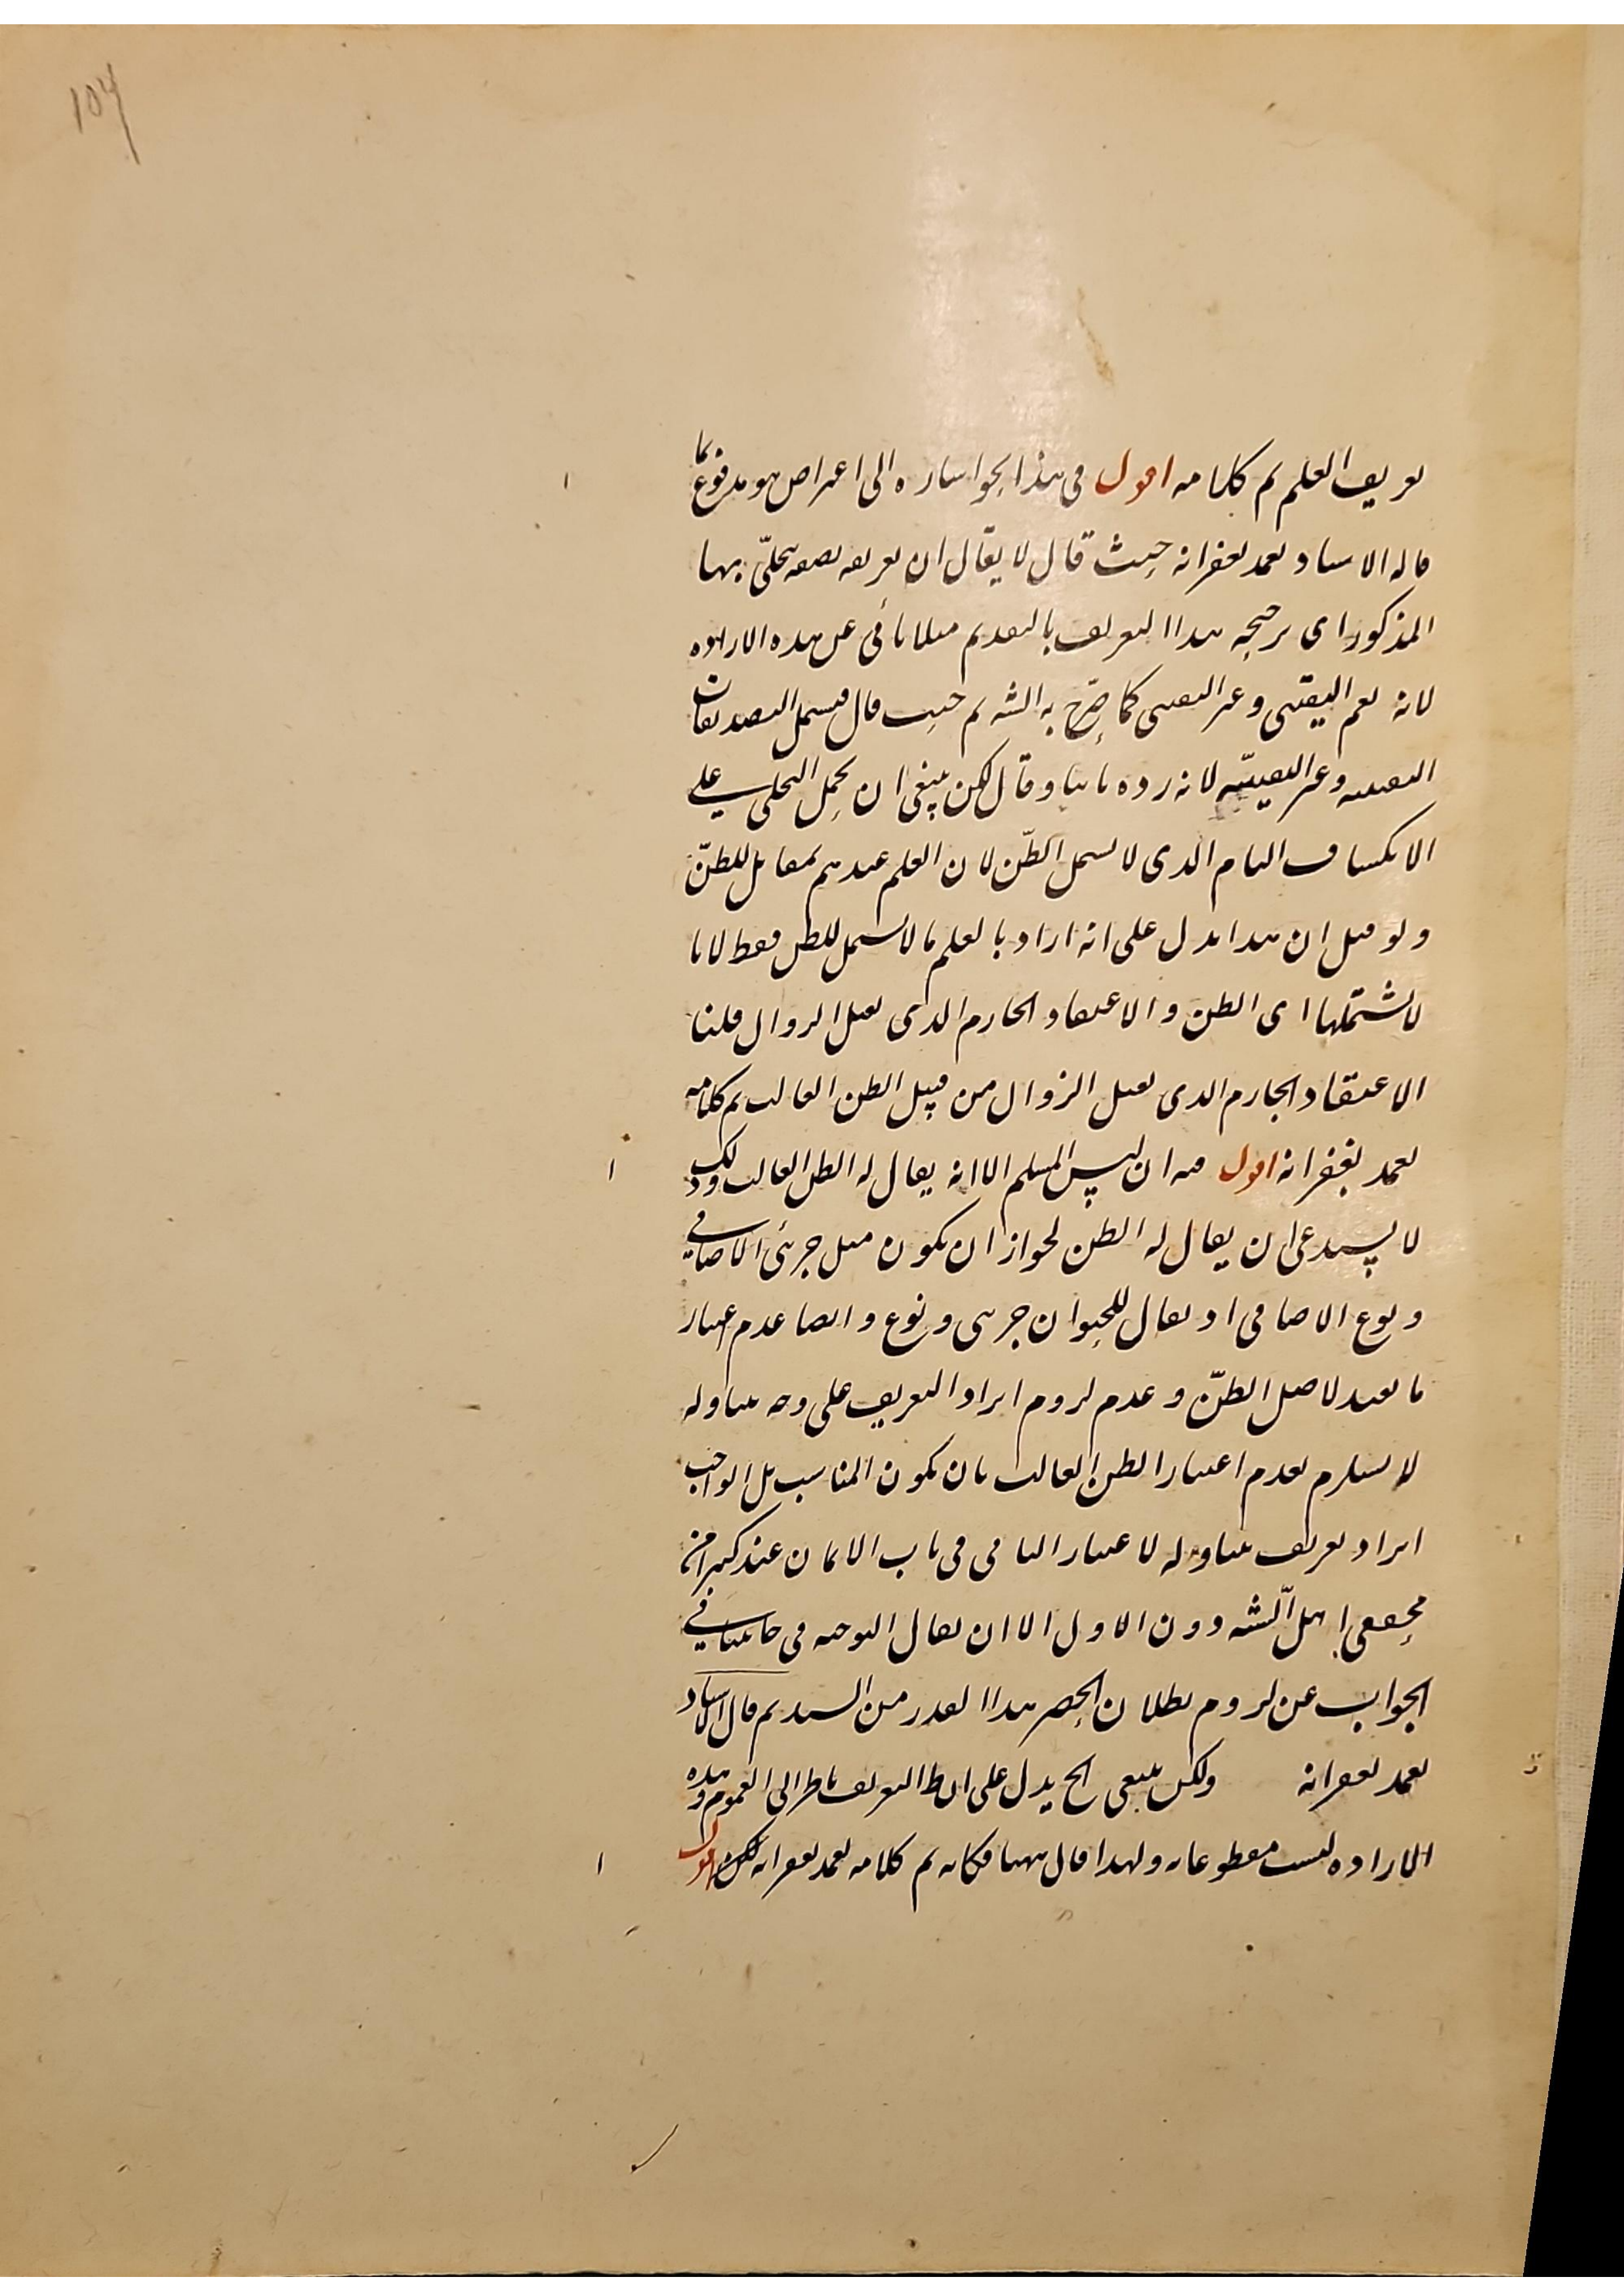 104
تعريف العلم تم كلامه اقول فى هذا الجواب اشاره الى اعتراض هو مدفوع بما
قاله الاستاد تغمد بغفرانه حيث قال لا يقال ان تعريفه بصفه يتجلّى بها
المذكور اى ترجيحه هذا التعريف بالتقديم مثلا يأبى عن هذه الاراده
لانه يعم اليقينى وغير اليقينى كما صرّح به الشه ثم حيث قال فيشمل التصديقات
اليقينيه وغير اليقينيّه لانه رده ثانيا وقال لكن ينبغى ان يحمل التجلى على
الانكشاف التام الذى لا يشمل الظنّ لان العلم عندهم بمقابل للظنّ
ولو قيل ان هذا يدل على انه اراد بالعلم ما لا يشمل للظن فقط لا ما
لا يشتملها اى الظن والاعتقاد الجازم الذى يقبل الزوال قلنا
الاعتقاد الجازم الذى يقبل الزوال من قبيل الظن الغالب تم كلامه
تغمد بغفرانه اقول فيه ان ليس المسلم الا انه يقال له الظن الغالب وذلك
لا يستدعى ان يقال له الظن لجواز ان يكون مثل جزئى الاضافى
ونوع الاضافى اذ يقال للحيوان جزئى ونوع وايضا عدم اعتبار
ما يفيد لاصل الظنّ وعدم لزوم ايراد التعريف على وجه يتناوله
لا يستلزم لعدم اعتبار الظن الغالب بان يكون المناسب بل الواجب
ايراد تعريف يتناوله لاعتبار الثانى فى باب الايمان عند كثير من
محققى اهل الشه دون الاول الا ان يقال التوجيه فى جانبنا فى
الجواب عن لزوم بطلان الحصر هذا القدر من السيد ثم قال الاستاد
تغمد بغفرانه ولكن ينبغى الخ يدل على ان ظ التعريف ناظر الى العموم وهذه
الاراده ليست مقطوعا به ولهذا قال ههنا فكانه تم كلامه تغمد بغفرانه لكن اقول